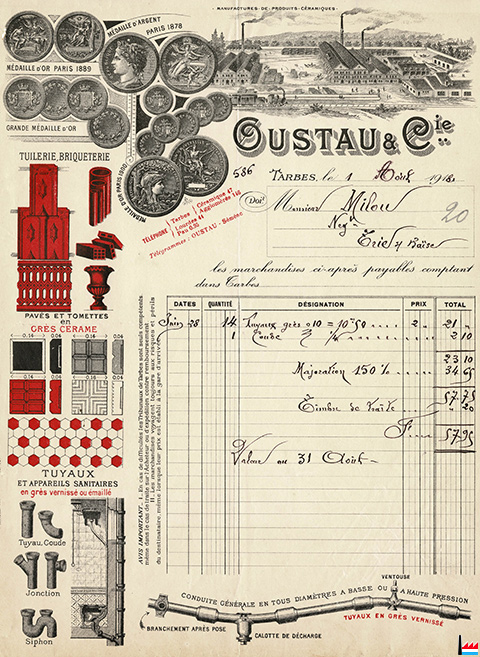 - MANUFACTURES DE PRODUITS CÉRAMIQUES -
MÉDAILLE D'ARGENT
PARIS 1878
MÉDAILLE D'OR PARIS 1889
GRANDE MÉDAILLE D'OR
MÉDAILLE D'OR PARIS 1900
OUSTAU & Cie
586
TARBES, le 1 Août 1918
Doit
Monsieur Milou
Negt
Trie s/ Baïse
20
TÉLÉPHONE
Tarbes
Céramique 47
Agglomérés 146
Lourdes 44
Pau 0.95
Télégrammes : OUSTAU-Séméac
les marchandises ci-après payables comptant
dans Tarbes
TUILERIE, BRIQUETERIE
PAVÉS ET TOMETTES
en
GRÈS CÉRAME
0.16 0.04 0.14 0.04
TUYAUX
ET APPAREILS SANITAIRES
en grès vernissé ou émaillé
Tuyau, Coude
Jonction
Siphon
AVIS IMPORTANT. I. En cas de difficultés les Tribunaux de Tarbes sont seuls compétents
même dans le cas de traite sur l'Acheteur ou d'expédition contre remboursement.
II. Les marchandises voyagent toujours aux risques et périls
du destinataire, même lorsque leur prix est établi à la gare d'arrivée.
DATES QUANTITÉ DÉSIGNATION PRIX TOTAL
Juin 28 14 Tuyaux grès 010 = 10m50 2 " 21 "
1 Coude 1/4 2 10
23 10
Majoration 150% 34 65
57 75
Timbre de traite " 20
F 57 95
Valeur au 31 Août -
VENTOUSE
CONDUITE GÉNÉRALE EN TOUS DIAMÈTRES A BASSE OU A HAUTE PRESSION
TUYAUX EN GRÈS VERNISSÉ
BRANCHEMENT APRÈS POSE
CALOTTE DE DÉCHARGE